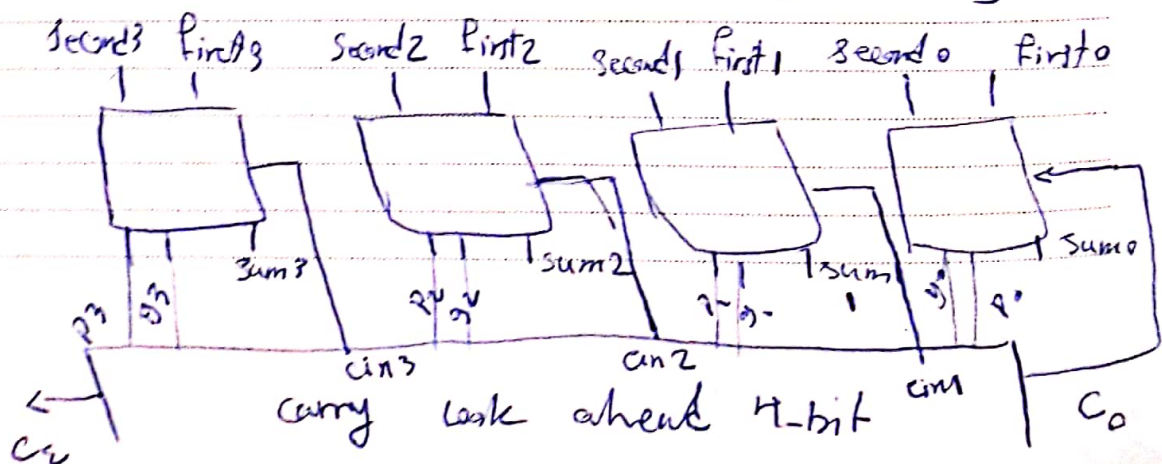 Second3 first3 Second2 first2 Second1 first1 Second0 first0
sum3 sum2 sum1 sum0
P3 g3
cin3 cin2 cin1
carry look ahead 4-bit C0